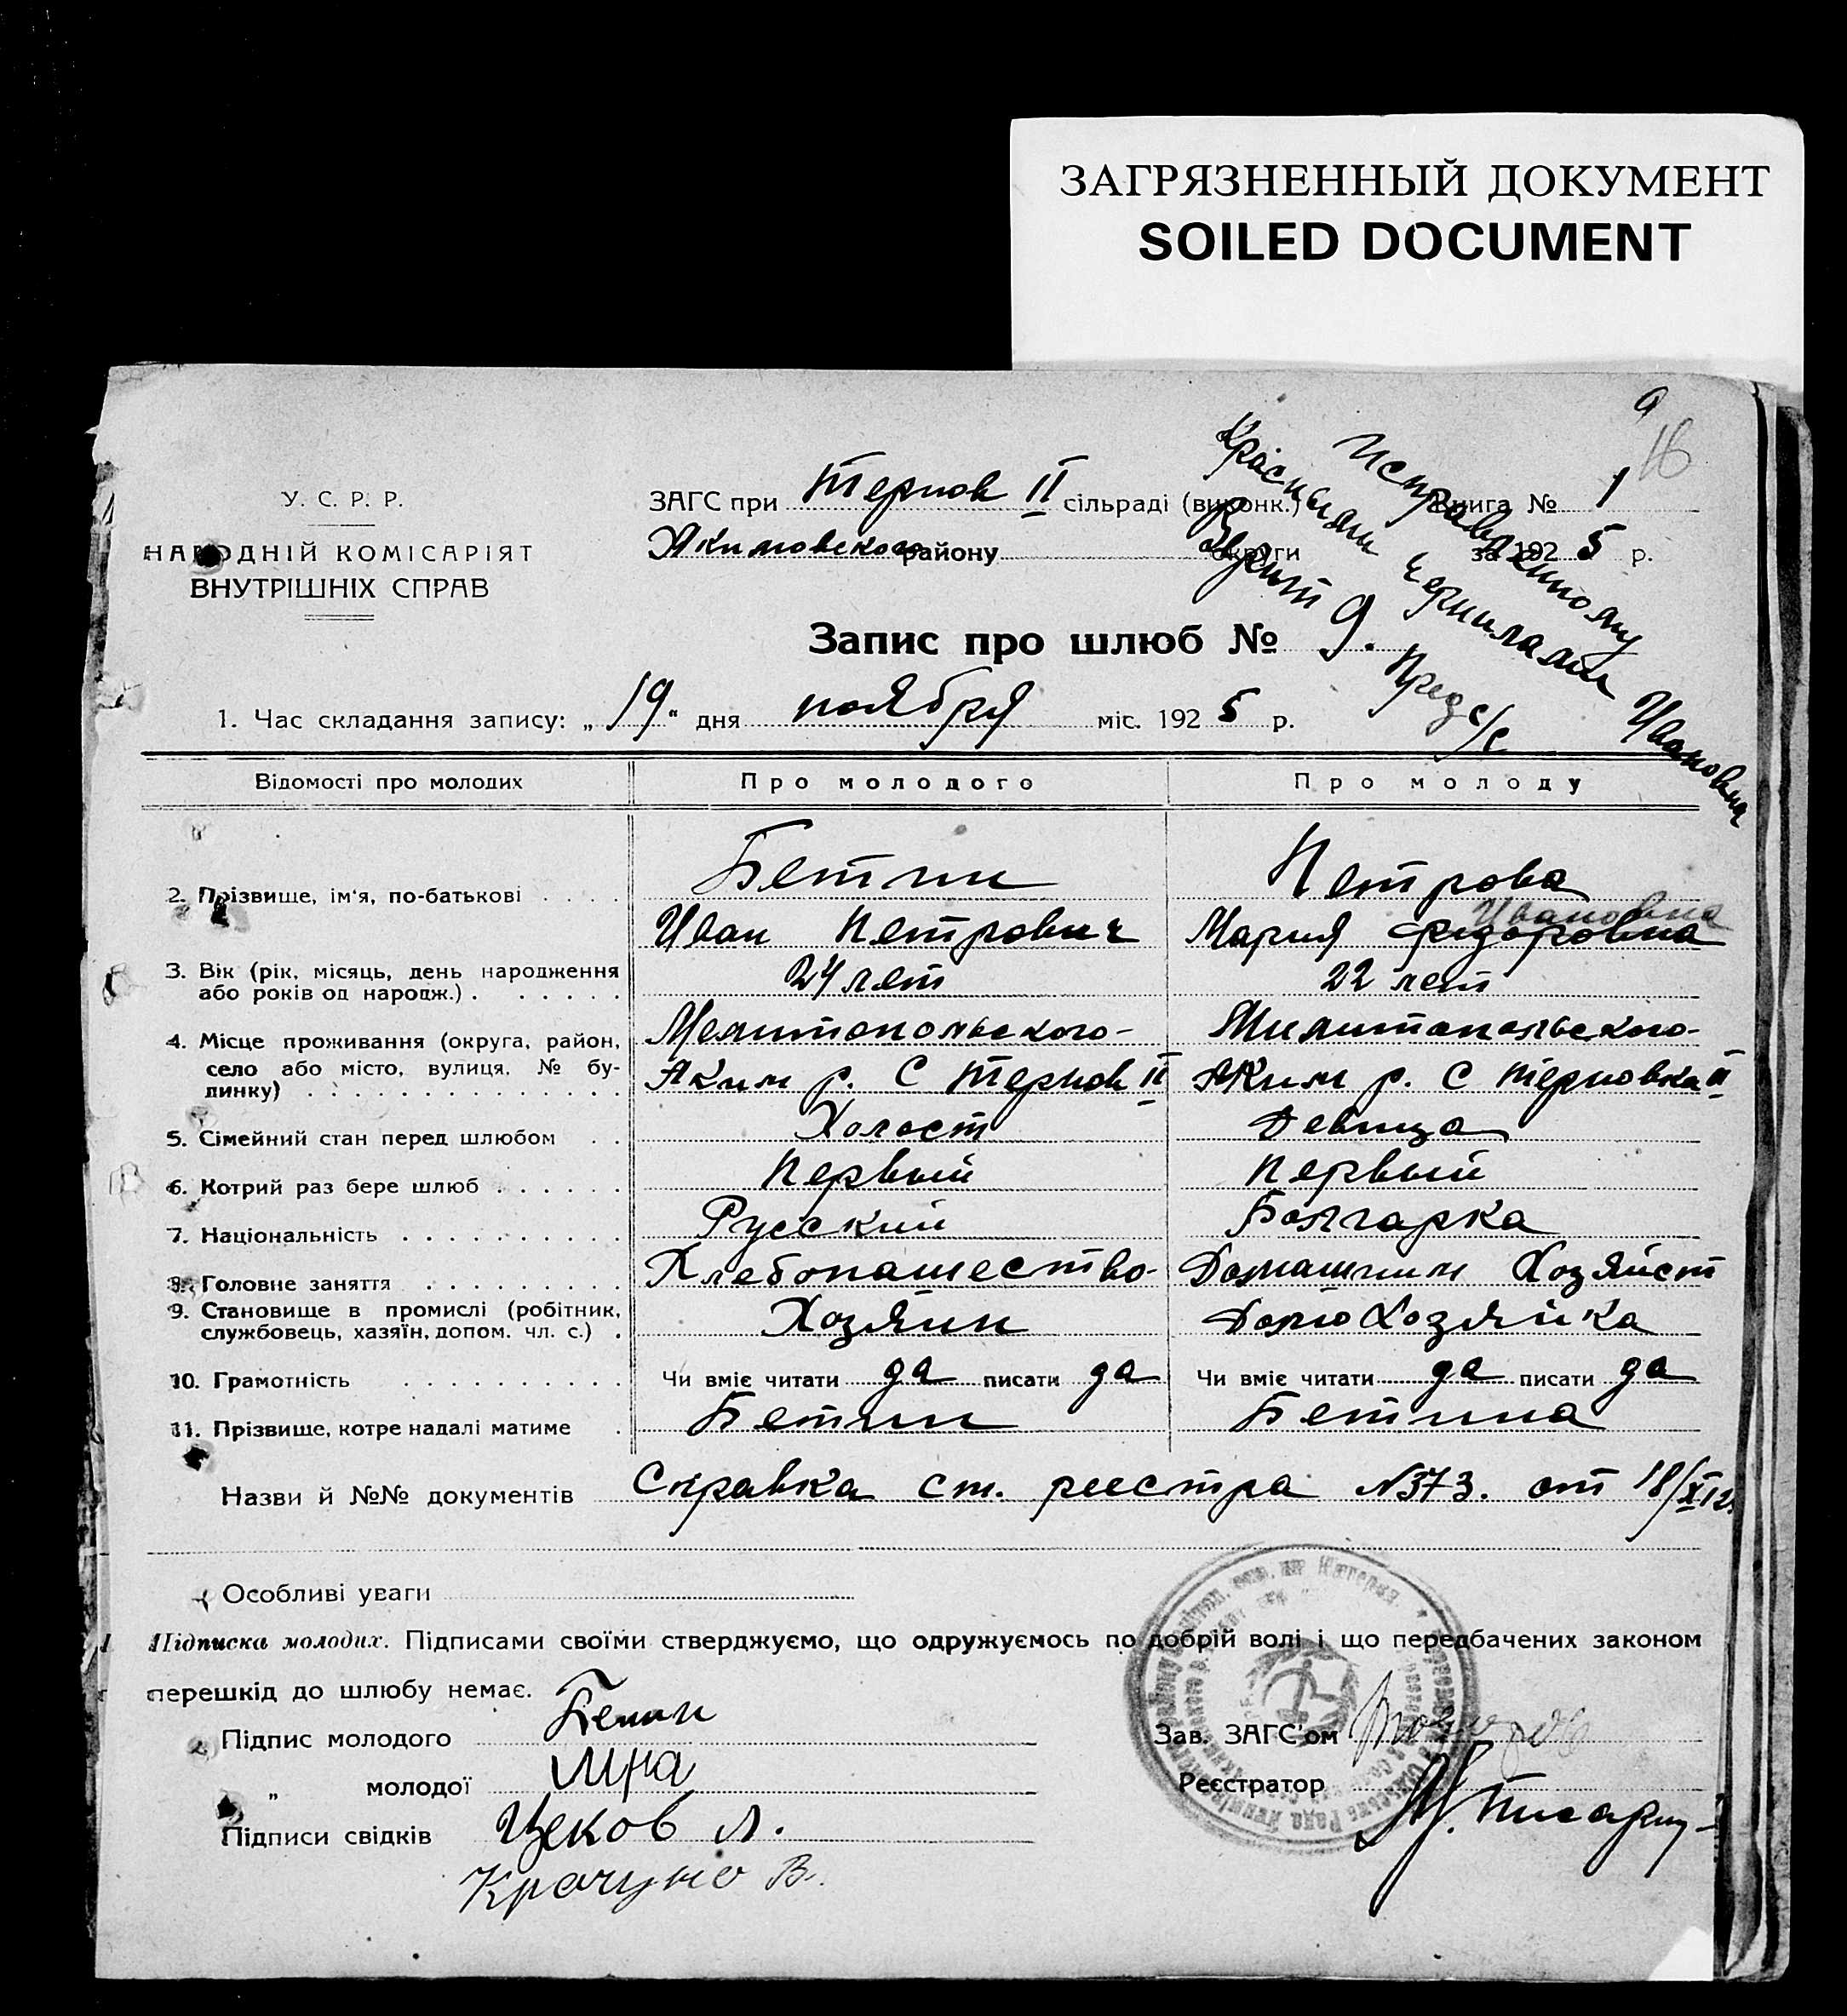 ЗАГРЯЗНЕННЫЙ ДОКУМЕНТ
SOILED DOCUMENT
16
У. С. Р. Р.
НАРОДНІЙ КОМІСАРІЯТ
ВНУТРІШНІХ СПРАВ
ЗАГС при Тернов II сільраді (виконк.) Книга № 1
Акимовского району округи за 1925 р.
Исправленному
Красными чернилами Ивановна
Верить
Пред с/с
Запис про шлюб № 9.
1. Час складання запису: „19" дня ноября міс. 1925 р.
Відомості про молодих Про молодого Про молоду
2. Прізвище, ім'я, по-батькові . . . . Бетин Петрова
Ивановна
Иван Петрович Мария Федоровна
3. Вік (рік, місяць, день народження або років од народж.) . . . . . . 24 лет 22 лет
4. Місце проживання (округа, район, село або місто, вулиця, № будинку) . . . . . . . . . . . . . . Мелитопольского- Милитопольского-
Аким р. С Тернов II Аким р. С Терновка II
5. Сімейний стан перед шлюбом . . Холост Девица
6. Котрий раз бере шлюб . . . . . . Первый Первый
7. Національність . . . . . . . . . . Русский Болгарка
8. Головне заняття . . . . . . . . . Хлебопашество- Домашним Хозяйст
9. Становище в промислі (робітник, службовець, хазяїн, допом. чл. с.) . Хозяин ДомоХозяйка
10. Грамотність . . . . . . . . . . Чи вміє читати да писати да Чи вміє читати да писати да
11. Прізвище, котре надалі матиме . Бетин Бетина
Назви й №№ документів Справка ст. реестра №373. от 18/XI
Особливі уваги
Підписка молодих. Підписами своїми стверджуємо, що одружуємось по добрій волі і що передбачених законом
перешкід до шлюбу немає.
Підпис молодого Бетин Зав. ЗАГС'ом
„ молодої Реєстратор
Підписи свідків Цеков Л.
В.